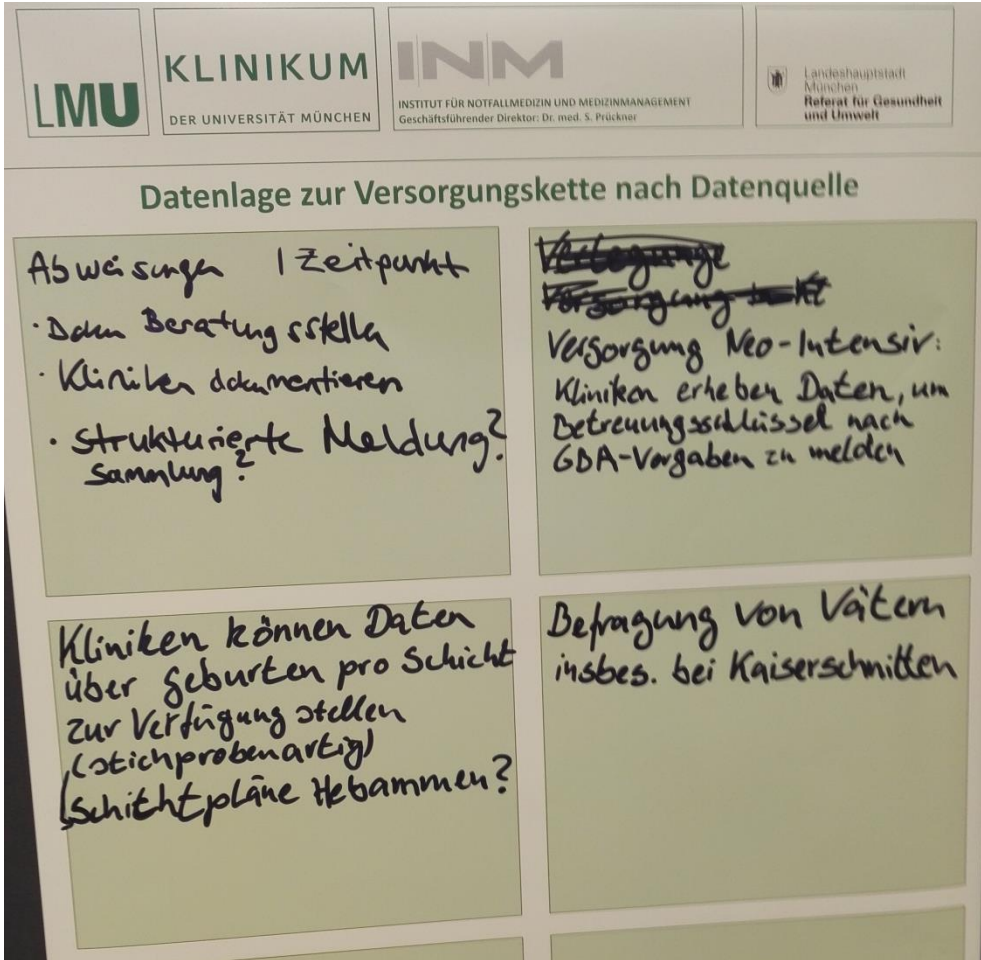 LMU
KLINIKUM
DER UNIVERSITÄT MÜNCHEN
INM
INSTITUT FÜR NOTFALLMEDIZIN UND MEDIZINMANAGEMENT
Geschäftsführender Direktor: Dr. med. S. Prückner
Landeshauptstadt
München
Referat für Gesundheit
und Umwelt
Datenlage zur Versorgungskette nach Datenquelle
Abweisungen / Zeitpunkt
· Daten Beratungsstellen
· Kliniken dokumentieren
· Strukturierte Meldung?
Sammlung?
Verlegunge
Versorgung
Versorgung Neo-Intensiv:
Kliniken erheben Daten, um
Betreuungsschlüssel nach
GBA-Vorgaben zu melden
Kliniken können Daten
über Geburten pro Schicht
zur Verfügung stellen
(stichprobenartig)
Schichtpläne Hebammen?
Befragung von Vätern
insbes. bei Kaiserschnitten